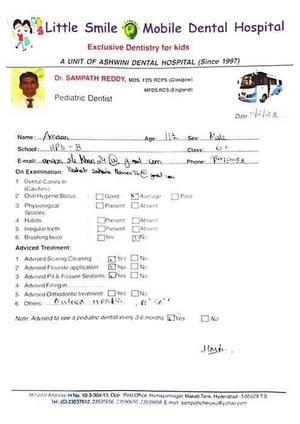 Little Smile Mobile Dental Hospital
Exclusive Dentistry for kids
A UNIT OF ASHWINI DENTAL HOSPITAL (Since 1997)
Dr. SAMPATH REDDY, MDS, FDS RCPS (Glasgow)
MFDS RCS (England)
Pediatric Dentist
Date
Name: Amaan Age: Sex: Male
School: HPS-B Class:
E-mail: Phone:
On Examination:
1 Dental Caries in (Cavities)
2 Oral Hygiene Status : Good Average Poor
3 Physiological Spaces : Present Absent
4 Habits : Present Absent
5 Irregular teeth : Present Absent
6 Brushing twice Yes No
Adviced Treatment:
1 Advised Scaling Cleaning : Yes No
2 Advised Flouride application Yes No
3 Advised Pit & Fissure Sealants Yes No
4 Advised Filling in
5 Advised Orthodontic treatment Yes No
6 Others
Note: Advised to see a pediatric dentist every 3-6 months Yes No
Hospital Address: H No. 10-3-304/13, Opp. Post Office, Humayunnagar, Masab Tank, Hyderabad - 500 028 T.S.